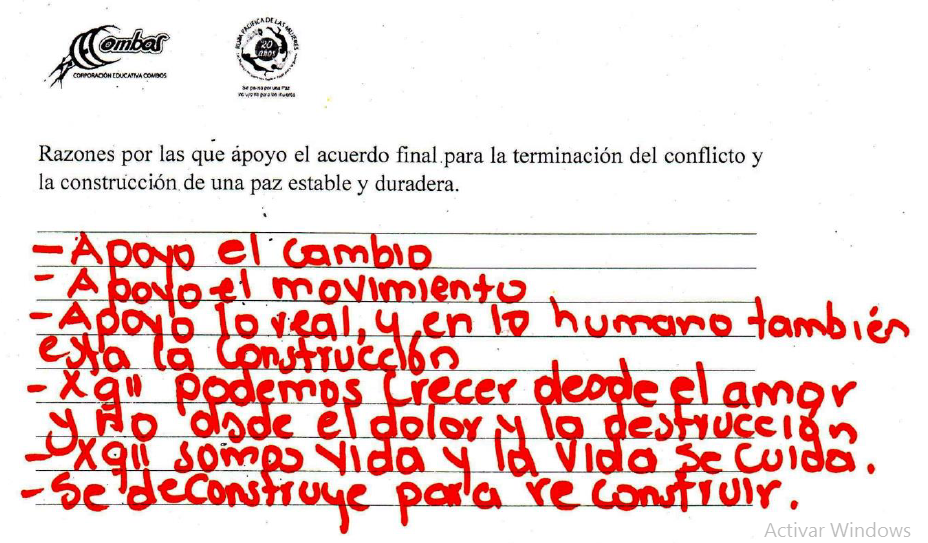 Combos
CORPORACIÓN EDUCATIVA COMBOS
RUTA PACIFICA DE LAS MUJERES
20 años
Razones por las que apoyo el acuerdo final para la terminación del conflicto y
la construcción de una paz estable y duradera.
- Apoyo el cambio
- Apoyo el movimiento
- Apoyo lo real, y en lo humano también
esta la construcción
- Xq'' podemos crecer desde el amor
y no desde el dolor y la destrucción
- Xq'' somos vida y la vida se cuida.
- Se deconstruye para re construir.
Activar Windows